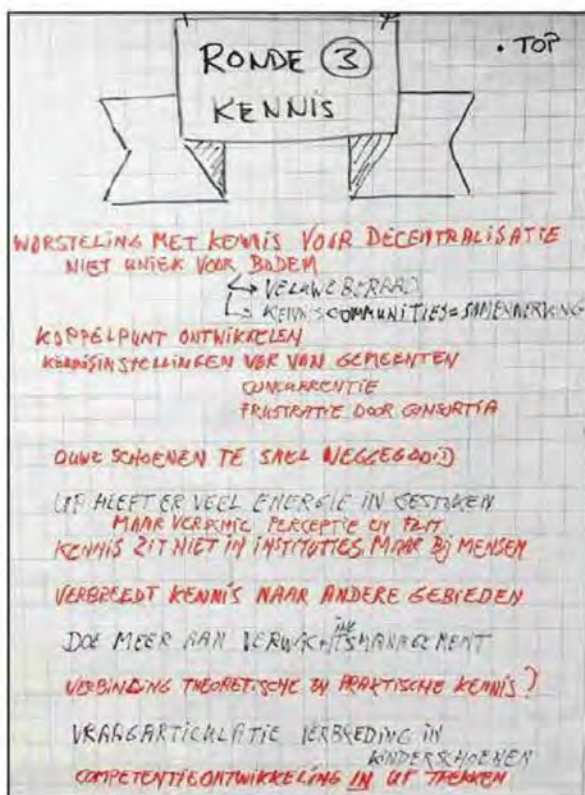 RONDE 3
KENNIS
• TOP
WORSTELING MET KENNIS VOOR DECENTRALISATIE
NIET UNIEK VOOR BODEM
↳ VELUWEBERAAD
↳ KENNISCOMMUNITIES = SAMENWERKING
KOPPELPUNT ONTWIKKELEN
KENNISINSTELLINGEN VER VAN GEMEENTEN
CONCURRENTIE
FRUSTRATIE DOOR CONSORTIA
OUWE SCHOENEN TE SNEL WEGGEGOOID
UP HEEFT ER VEEL ENERGIE IN GESTOKEN
MAAR PERCEPTIE EN FEIT
KENNIS ZIT NIET IN INSTITUTIES, MAAR BIJ MENSEN
VERBREEDT KENNIS NAAR ANDERE GEBIEDEN
DOE MEER AAN VERWACHTINGSMANAGEMENT
VERBINDING THEORETISCHE EN PRAKTISCHE KENNIS?
VRAAGARTICULATIE VERBREDING IN
KINDERSCHOENEN
COMPETENTIEONTWIKKELING IN UP TREKKEN